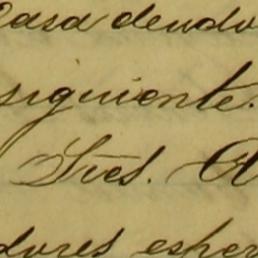 Casa deudo
siguiente.
Sres. A
dores esper